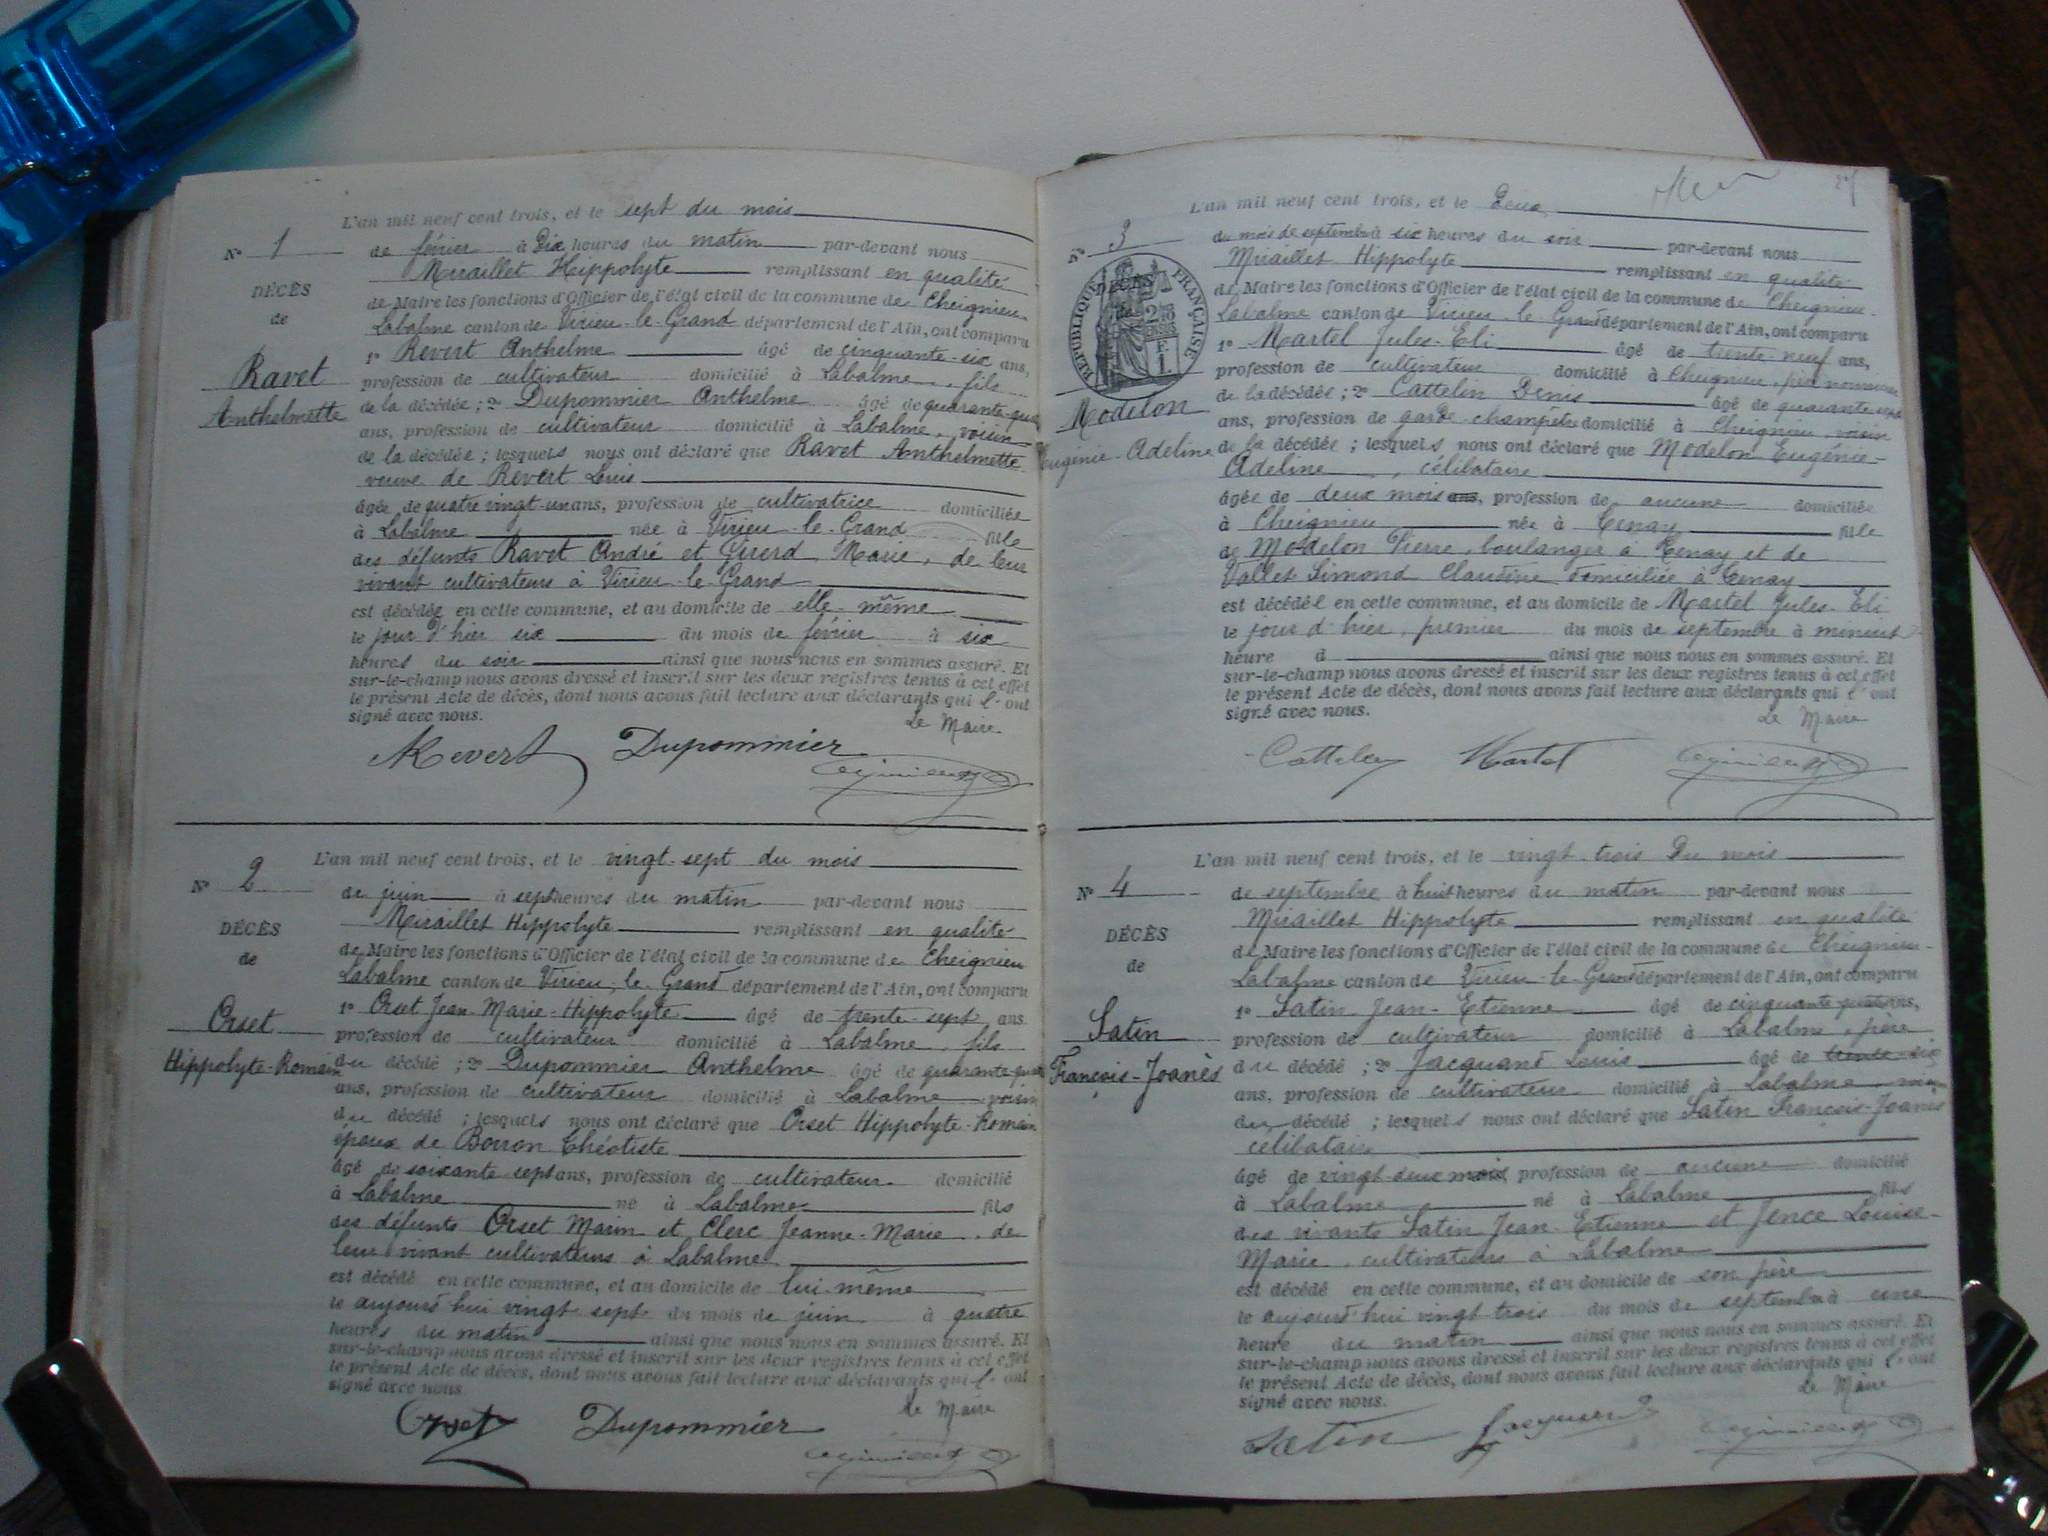 L'an mil neuf cent trois, et le sept du mois
N° 1 de février à dix heures du matin par-devant nous
Miraillet Hippolyte remplissant en qualité
DÉCÈS de Maire les fonctions d'Officier de l'état civil de la commune de Cheignieu
de Labalme canton de Virieu-le-Grand département de l'Ain, ont comparu
1° Revert Anthelme âgé de cinquante-six ans,
Ravet profession de cultivateur domicilié à Labalme, fils
Anthelmette de la décédée; 2° Dupommier Anthelme âgé de quarante-quatre
ans, profession de cultivateur domicilié à Labalme, voisin
de la décédée; lesquels nous ont déclaré que Ravet Anthelmette
veuve de Revert Louis
âgée de quatre vingt-un ans, profession de cultivatrice domiciliée
à Labalme née à Virieu-le-Grand fille
des défunts Ravet André et Girerd Marie, de leur
vivant cultivateurs à Virieu-le-Grand
est décédée en cette commune, et au domicile de elle-même
le jour d'hier six du mois de février à six
heures du soir ainsi que nous nous en sommes assuré. Et
sur-le-champ nous avons dressé et inscrit sur les deux registres tenus à cet effet
le présent Acte de décès, dont nous avons fait lecture aux déclarants qui l'ont
signé avec nous.
Le Maire
Revert Dupommier
L'an mil neuf cent trois, et le vingt-sept du mois
N° 2 de juin à sept heures du matin par-devant nous
Miraillet Hippolyte remplissant en qualité
DÉCÈS de Maire les fonctions d'Officier de l'état civil de la commune de Cheignieu
de Labalme canton de Virieu-le-Grand département de l'Ain, ont comparu
1° Orset Jean-Marie-Hippolyte âgé de trente-sept ans
Orset profession de cultivateur domicilié à Labalme, fils
Hippolyte-Romain du décédé; 2° Dupommier Anthelme âgé de quarante-quatre
ans, profession de cultivateur domicilié à Labalme voisin
du décédé; lesquels nous ont déclaré que Orset Hippolyte-Romain
époux de Borron Théotiste
âgé de soixante sept ans, profession de cultivateur domicilié
à Labalme né à Labalme fils
des défunts Orset Marin et Clerc Jeanne-Marie, de
leur vivant cultivateurs à Labalme
est décédé en cette commune, et au domicile de lui-même
le aujourd'hui vingt sept du mois de juin à quatre
heures du matin ainsi que nous nous en sommes assuré. Et
sur-le-champ nous avons dressé et inscrit sur les deux registres tenus à cet effet
le présent Acte de décès, dont nous avons fait lecture aux déclarants qui l'ont
signé avec nous
Le Maire
Orset Dupommier
L'an mil neuf cent trois, et le deux
N° 3 du mois de septembre à six heures du soir par-devant nous
Miraillet Hippolyte remplissant en qualité
DÉCÈS de Maire les fonctions d'Officier de l'état civil de la commune de Cheignieu-
de Labalme canton de Virieu-le-Grand département de l'Ain, ont comparu
RÉPUBLIQUE FRANÇAISE
1° Martel Jules-Eli âgé de trente-neuf ans,
profession de cultivateur domicilié à Cheignieu, père nourricier
Modelon de la décédée; 2° Cattelin Denis âgé de quarante-sept
ans, profession de garde-champêtre domicilié à Cheignieu, voisin
Eugénie-Adeline de la décédée; lesquels nous ont déclaré que Modelon Eugénie-
Adeline, célibataire
âgée de deux mois ans, profession de aucune domiciliée
à Cheignieu née à Tenay fille
de Modelon Pierre, boulanger à Tenay et de
Vallet Simond Claudine domiciliée à Tenay
est décédée en cette commune, et au domicile de Martel Jules-Eli
le jour d'hier, premier du mois de septembre à minuit
heure à ainsi que nous nous en sommes assuré. Et
sur-le-champ nous avons dressé et inscrit sur les deux registres tenus à cet effet
le présent Acte de décès, dont nous avons fait lecture aux déclarants qui l'ont
signé avec nous.
Le Maire
Martel
L'an mil neuf cent trois, et le vingt-trois du mois
N° 4 de septembre à huit heures du matin par-devant nous
Miraillet Hippolyte remplissant en qualité
DÉCÈS de Maire les fonctions d'Officier de l'état civil de la commune de Cheignieu-
de Labalme canton de Virieu-le-Grand département de l'Ain, ont comparu
1° Satin Jean-Etienne âgé de cinquante-quatre ans,
Satin profession de cultivateur domicilié à Labalme, père
François-Joanès du décédé; 2° Jacquand Louis âgé de trente-six
ans, profession de cultivateur domicilié à Labalme
du décédé; lesquels nous ont déclaré que Satin François-Joanès
célibataire
âgé de vingt-deux mois, profession de aucune domicilié
à Labalme né à Labalme fils
des vivants Satin Jean-Etienne et Jence Louise-
Marie, cultivateurs à Labalme
est décédé en cette commune, et au domicile de son père
le aujourd'hui vingt trois du mois de septembre à une
heure du matin ainsi que nous nous en sommes assuré. Et
sur-le-champ nous avons dressé et inscrit sur les deux registres tenus à cet effet
le présent Acte de décès, dont nous avons fait lecture aux déclarants qui l'ont
signé avec nous.
Le Maire
Satin Jacquand